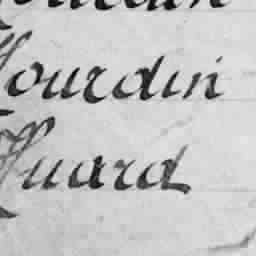 Hourdin
Huard